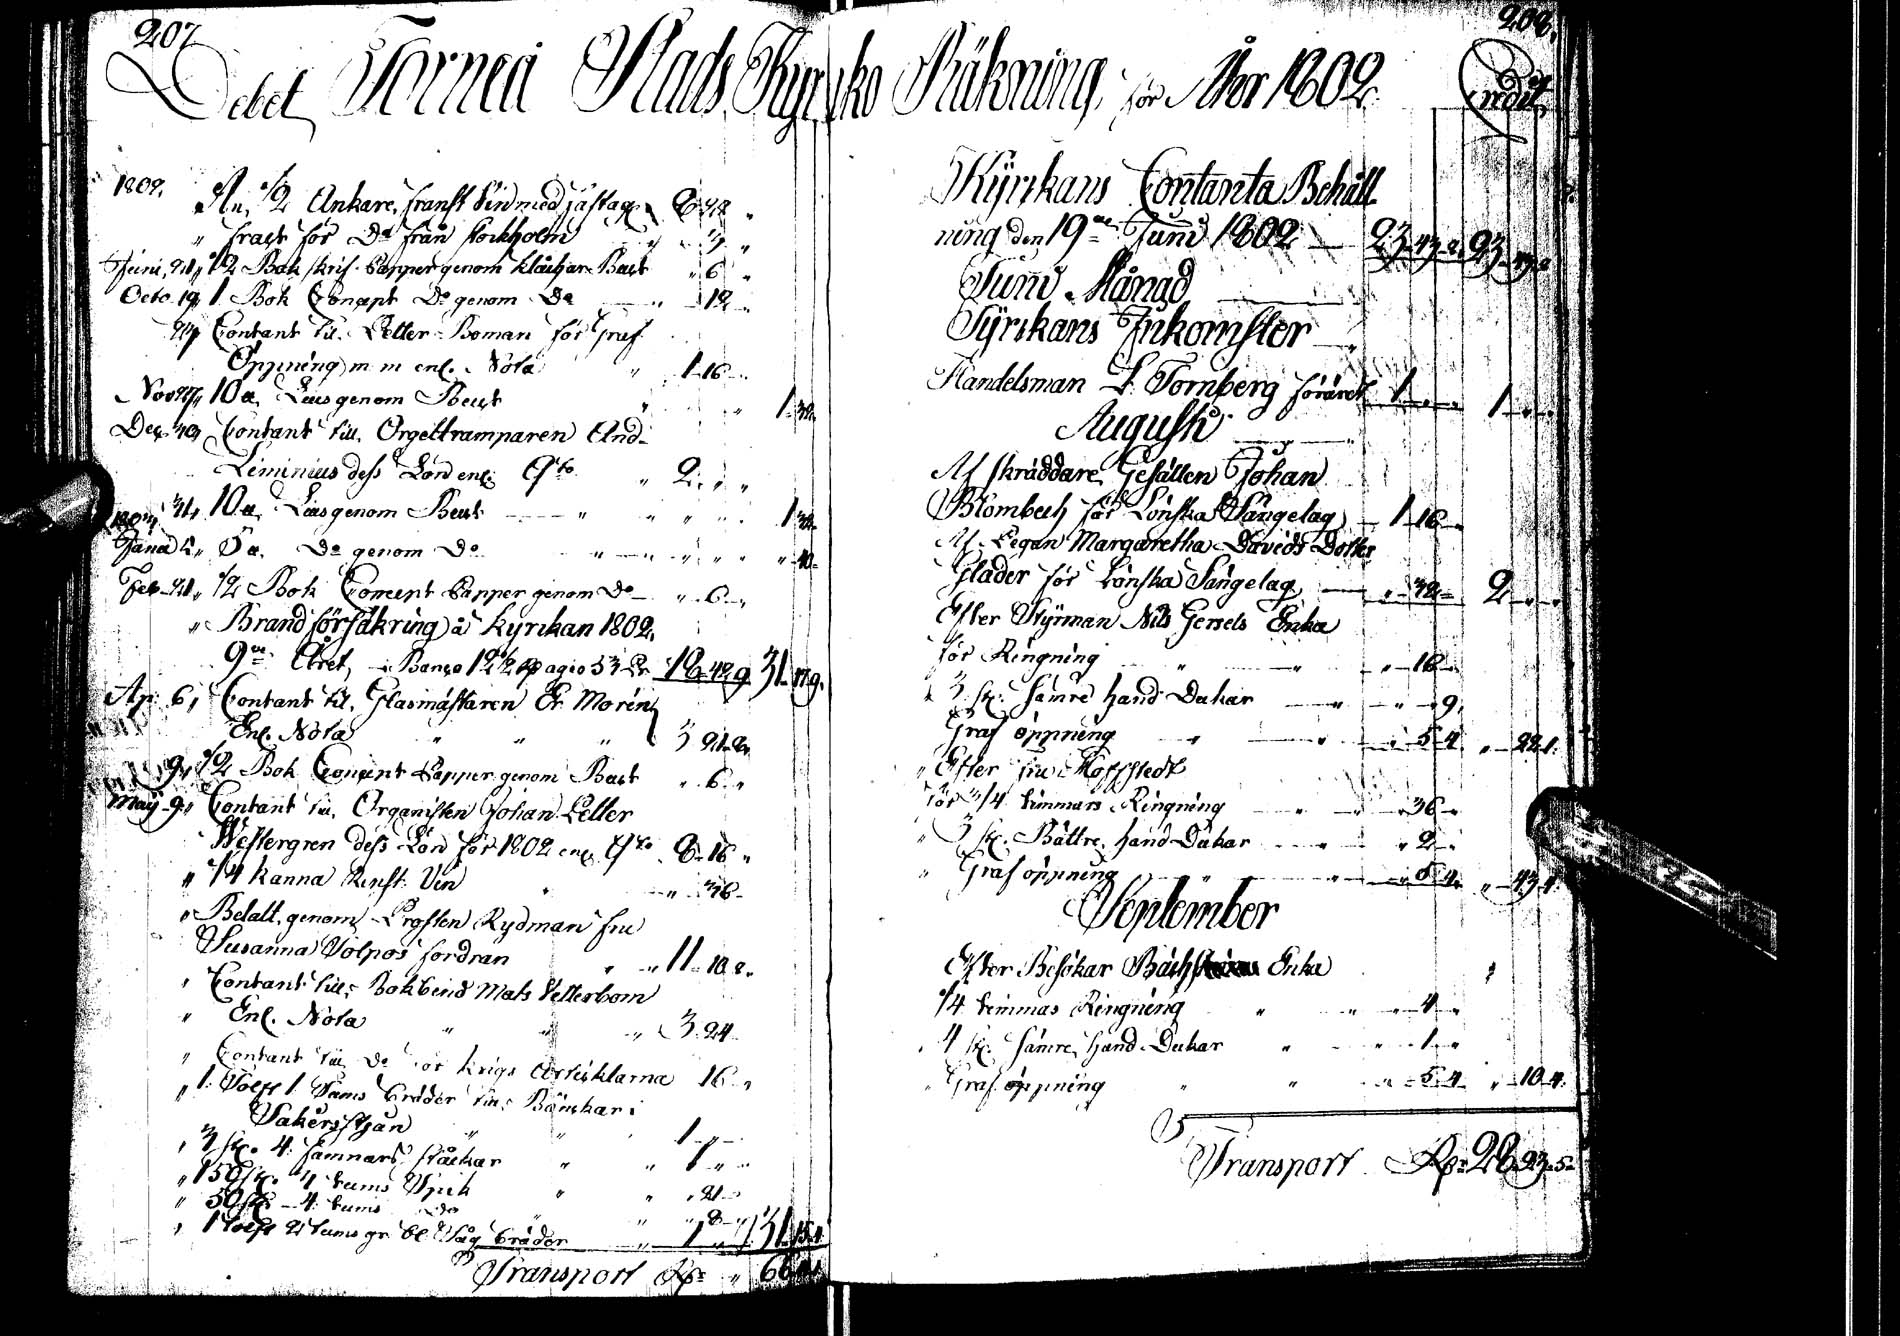 207
Debet Torneå Stads Kyrko Räkning för Åhr 1802
1802. An 1/2 Ankare franst Vin med fastage 8 42 "
" fract för Do från Stockholm
Junii 21 " 1/2 Bok skrif Papper genom Klåckar Beust " 6 "
Octo 19 " 1 Bok Concept Do genom Do " 12 "
Contant till Petter Boman för Graf
Öppning m m enl. Nota " 1 16
Nov 27 " 10 lius genom Beust 1 32
Dec Contant till Orgeltramparen And
Liminius dess Lön enl. Qto " 2 " "
31 " 10 Lius genom Beust 1 32
1803
Janu 5 Do genom Do " 40
Feb 21 " 1/2 Bok Concept Papper genom Do " 6 "
" Brandförsäkring å Kyrckan 1802
9de Året, Banco 12 1/2 agio 53 18 42 9 31 17 9
Ap. 6 " Contant til Glasmästaren Er Morén
Enl. Nota " " " 3 21
9 " 1/2 Bok Concept Papper genom Beust " 6 "
Maij 9 " Contant till Organisten Johan Petter
Westergren dess Lön för 1802 enl. Qto 8 16 "
" 1/4 kanna Renst Vin " 36
" Betalt genom Prosten Rydman fru
Susanna Volpos fordran " " 11 10 8
" Contant till Bokbind Mats Vetterbom
" Enl. Nota " " " 3 24
" Contant till Do för Krigs Artiklarna 16 "
" 1 Tolft 1 Tums bräder till
" " 1 "
" 3 st. 4 famnars ståckar " " 1 " "
" 150 st. 4 tums Spik " " " 21
" 50 st. 4 tums do " " 8
" 1 tolft 2 tums gr. Såg bräder " 1 " 31 15 4
Transport Rdr " 66
208.
Credit
Kyrckans Contanta Behåll
ning den 19de Junii 1802 23 43 8 23 43 8
Junii Månad
Kyrckans Inkomster
Handelsman Tornberg föräret 1 " " 1 " "
Augusti
Af Skräddare Gesällen Johan
Blombech för Lönska Sängelag 1 16 "
Af Pigan Margaretha Davids Dotter
Glader för Lönska Sängelag " 32 2 " "
Efter Styrman Nils Gersels Enka
för Ringning " " " 16
" 3 st. Sämre Hand Dukar " " " 9
Graf öppning " " " 5 4 " 22 1
" Efter fru Hoffstedt
för 3/4 timmars Ringning " " " 36 "
" 3 st. Bättre Hand Dukar " " 2 "
" Graf öppning " " " 5 4 " 43 4
September
Efter Besökar Enka
1/4 timmas Ringning " " " 4 "
" 4 st. Sämre Hand Dukar " " 1 "
" Graf öppning " " " 5 4 " 10 4
Transport Rdr 28 23 5